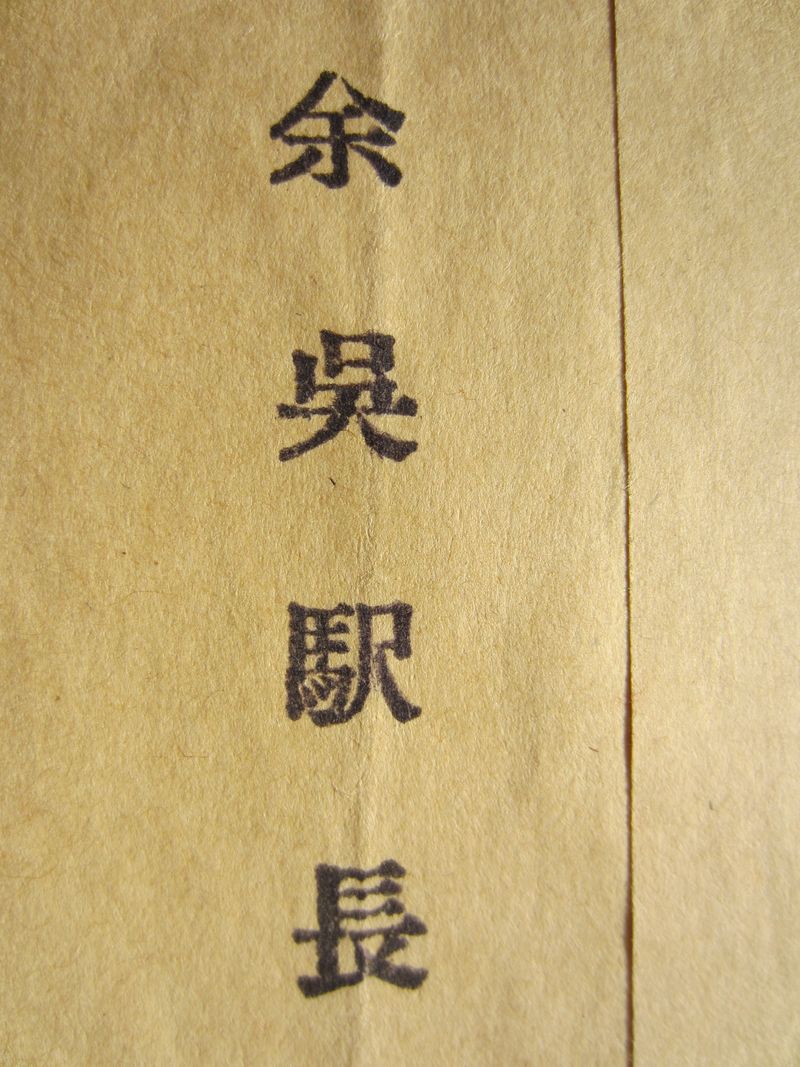 余呉駅長